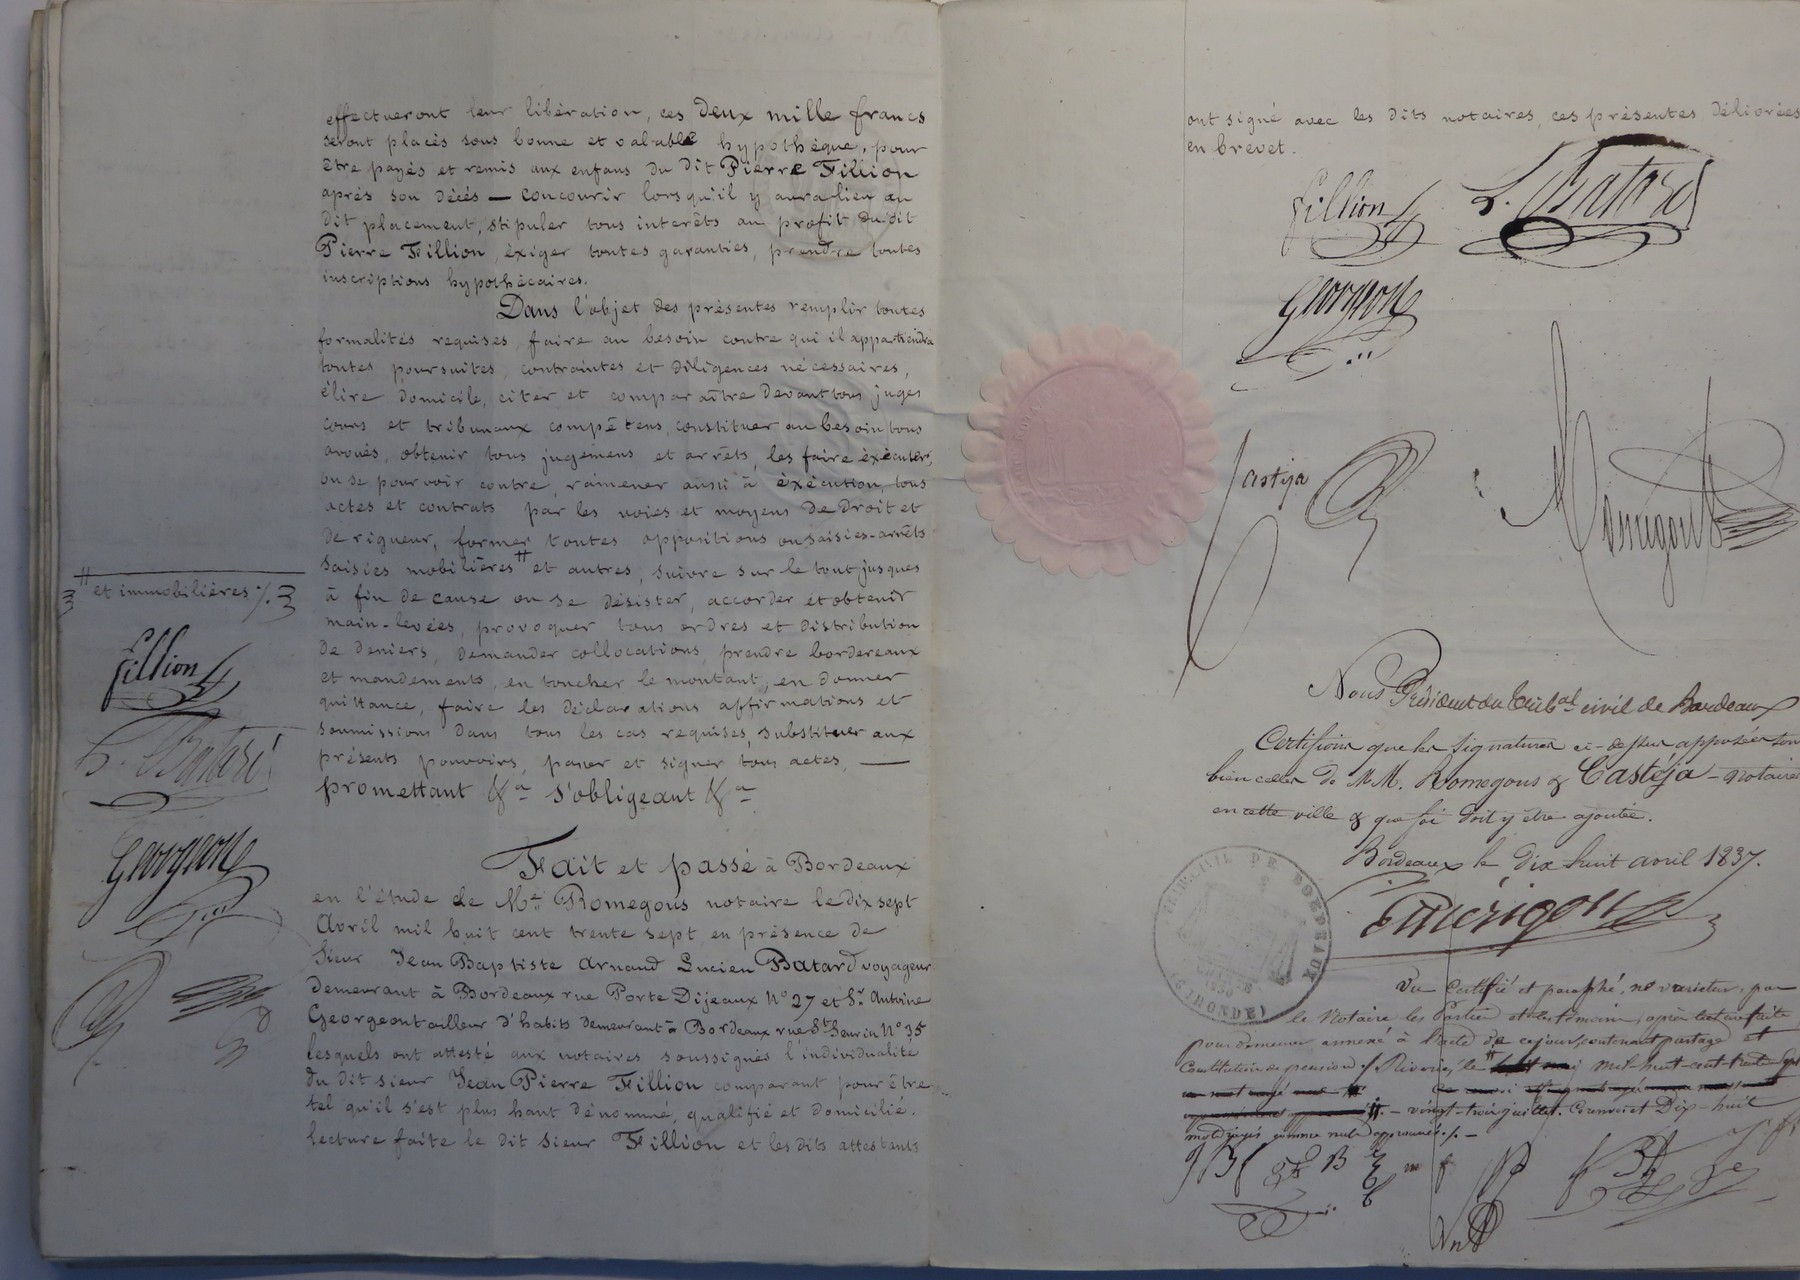 effectueront leur libération, ces deux mille francs
seront placés sous bonne et valable hypothèque, pour
être payés et remis aux enfans du dit Pierre Fillion
après son décès — concourir lorsqu'il y aura lieu au
dit placement, stipuler tous interêts au profit du dit
Pierre Fillion, éxiger toutes garanties, prendre toutes
inscriptions hypothécaires.
Dans l'objet des présentes remplir toutes
formalités requises, faire au besoin contre qui il appartiendra
toutes poursuites, contraintes et diligences nécessaires,
élire domicile, citer et comparaître devant tous juges
cours et tribunaux compétens, constituer au besoin tous
avoués, obtenir tous jugemens et arrêts, les faire éxécuter,
ou se pourvoir contre, ramener aussi à éxécution, tous
actes et contrats par les voies et moyens de droit et
de rigueur, former toutes oppositions ou saisies-arrêts
saisies mobilières # et autres, suivre sur le tout jusques
à fin de cause ou se désister, accorder et obtenir
main-levées, provoquer tous ordres et distribution
de deniers, demander collocations, prendre bordereaux
et mandements, en toucher le montant, en donner
quittance, faire les déclarations affirmations et
soumissions dans tous les cas requises, substituer aux
présents pouvoirs, passer et signer tous actes, —
promettant &a s'obligeant &a
Fait et passé à Bordeaux
en l'étude de Me Romegous notaire le dix sept
Avril mil huit cent trente sept, en présence de
Sieur Jean Baptiste Arnaud Lucien Batard voyageur
demeurant à Bordeaux rue Porte Dijeaux N° 27 et Sr. Antoine
Georgeon tailleur d'habits demeurant à Bordeaux rue St Seurin N° 35
lesquels ont attesté aux notaires soussignés l'individualité
du dit sieur Jean Pierre Fillion comparant pour être
tel qu'il s'est plus haut dénommé, qualifié et domicilié.
lecture faite le dit sieur Fillion et les dits attestants
# et immobilières ./.
fillion
L. Batard
Georgeon
ont signé avec les dits notaires, ces présentes délivrées
en brevet.
fillion
L. Batard
Georgeon
Castéja
Romegous
Nous Président du Tribal civil de Bordeaux
Certifions que les signatures ci-dessus apposées sont
bien celles de MM. Romegous & Castéja - notaires
en cette ville & que foi doit y être ajoutée.
Bordeaux le dix huit avril 1837.
Emérigon
TRIBUNAL DE BORDEAUX
(GIRONDE)
Vu Certifié et paraphé, ne varietur, par
le Notaire les Parties et les témoins, après lecture faite
pour demeurer annexé à l'acte de ce jour, contenant partage et
Constitution de pension / Rivoire, le # mil-huit-cent-trente sept
#. - vingt-trois juillet.
mots rayés comme nuls approuvés. /. —